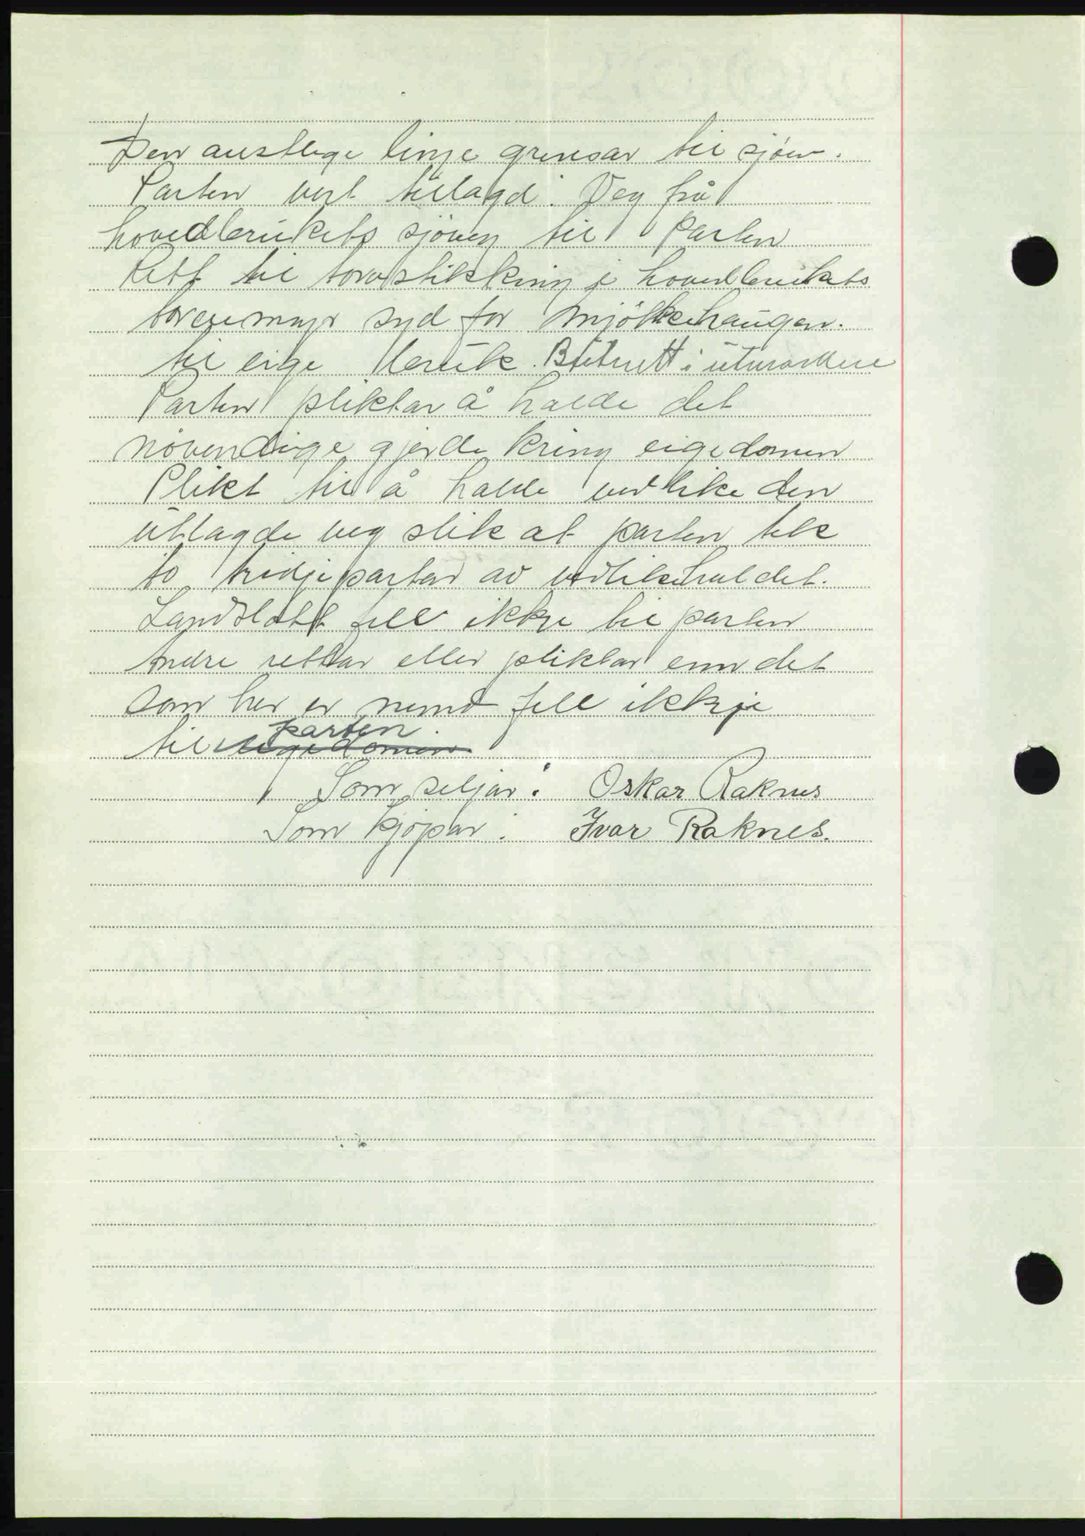 Den austlege linje grensar til sjøen.
Parten vert tillagd: Veg frå
hovedbrukets sjöveg til parten
Rett til torvstikking i hovedbrukets
torvemyr syd for Mjölkehaugen.
til eige bruk. Beiterett i utmarken
Parten pliktar å halde det
növendige gjerde kring eigedomen
Plikt til å halde ved like den
utlagde veg slik at parten tek
to tridjepartar av vedlikehaldet.
Landslott fell ikkje til parten
Andre rettar eller pliktar enn det
som her er nemnt fell ikkje
til eigedomen parten.
Som seljar: Oskar Raknes
Som kjöpar: Ivar Raknes.